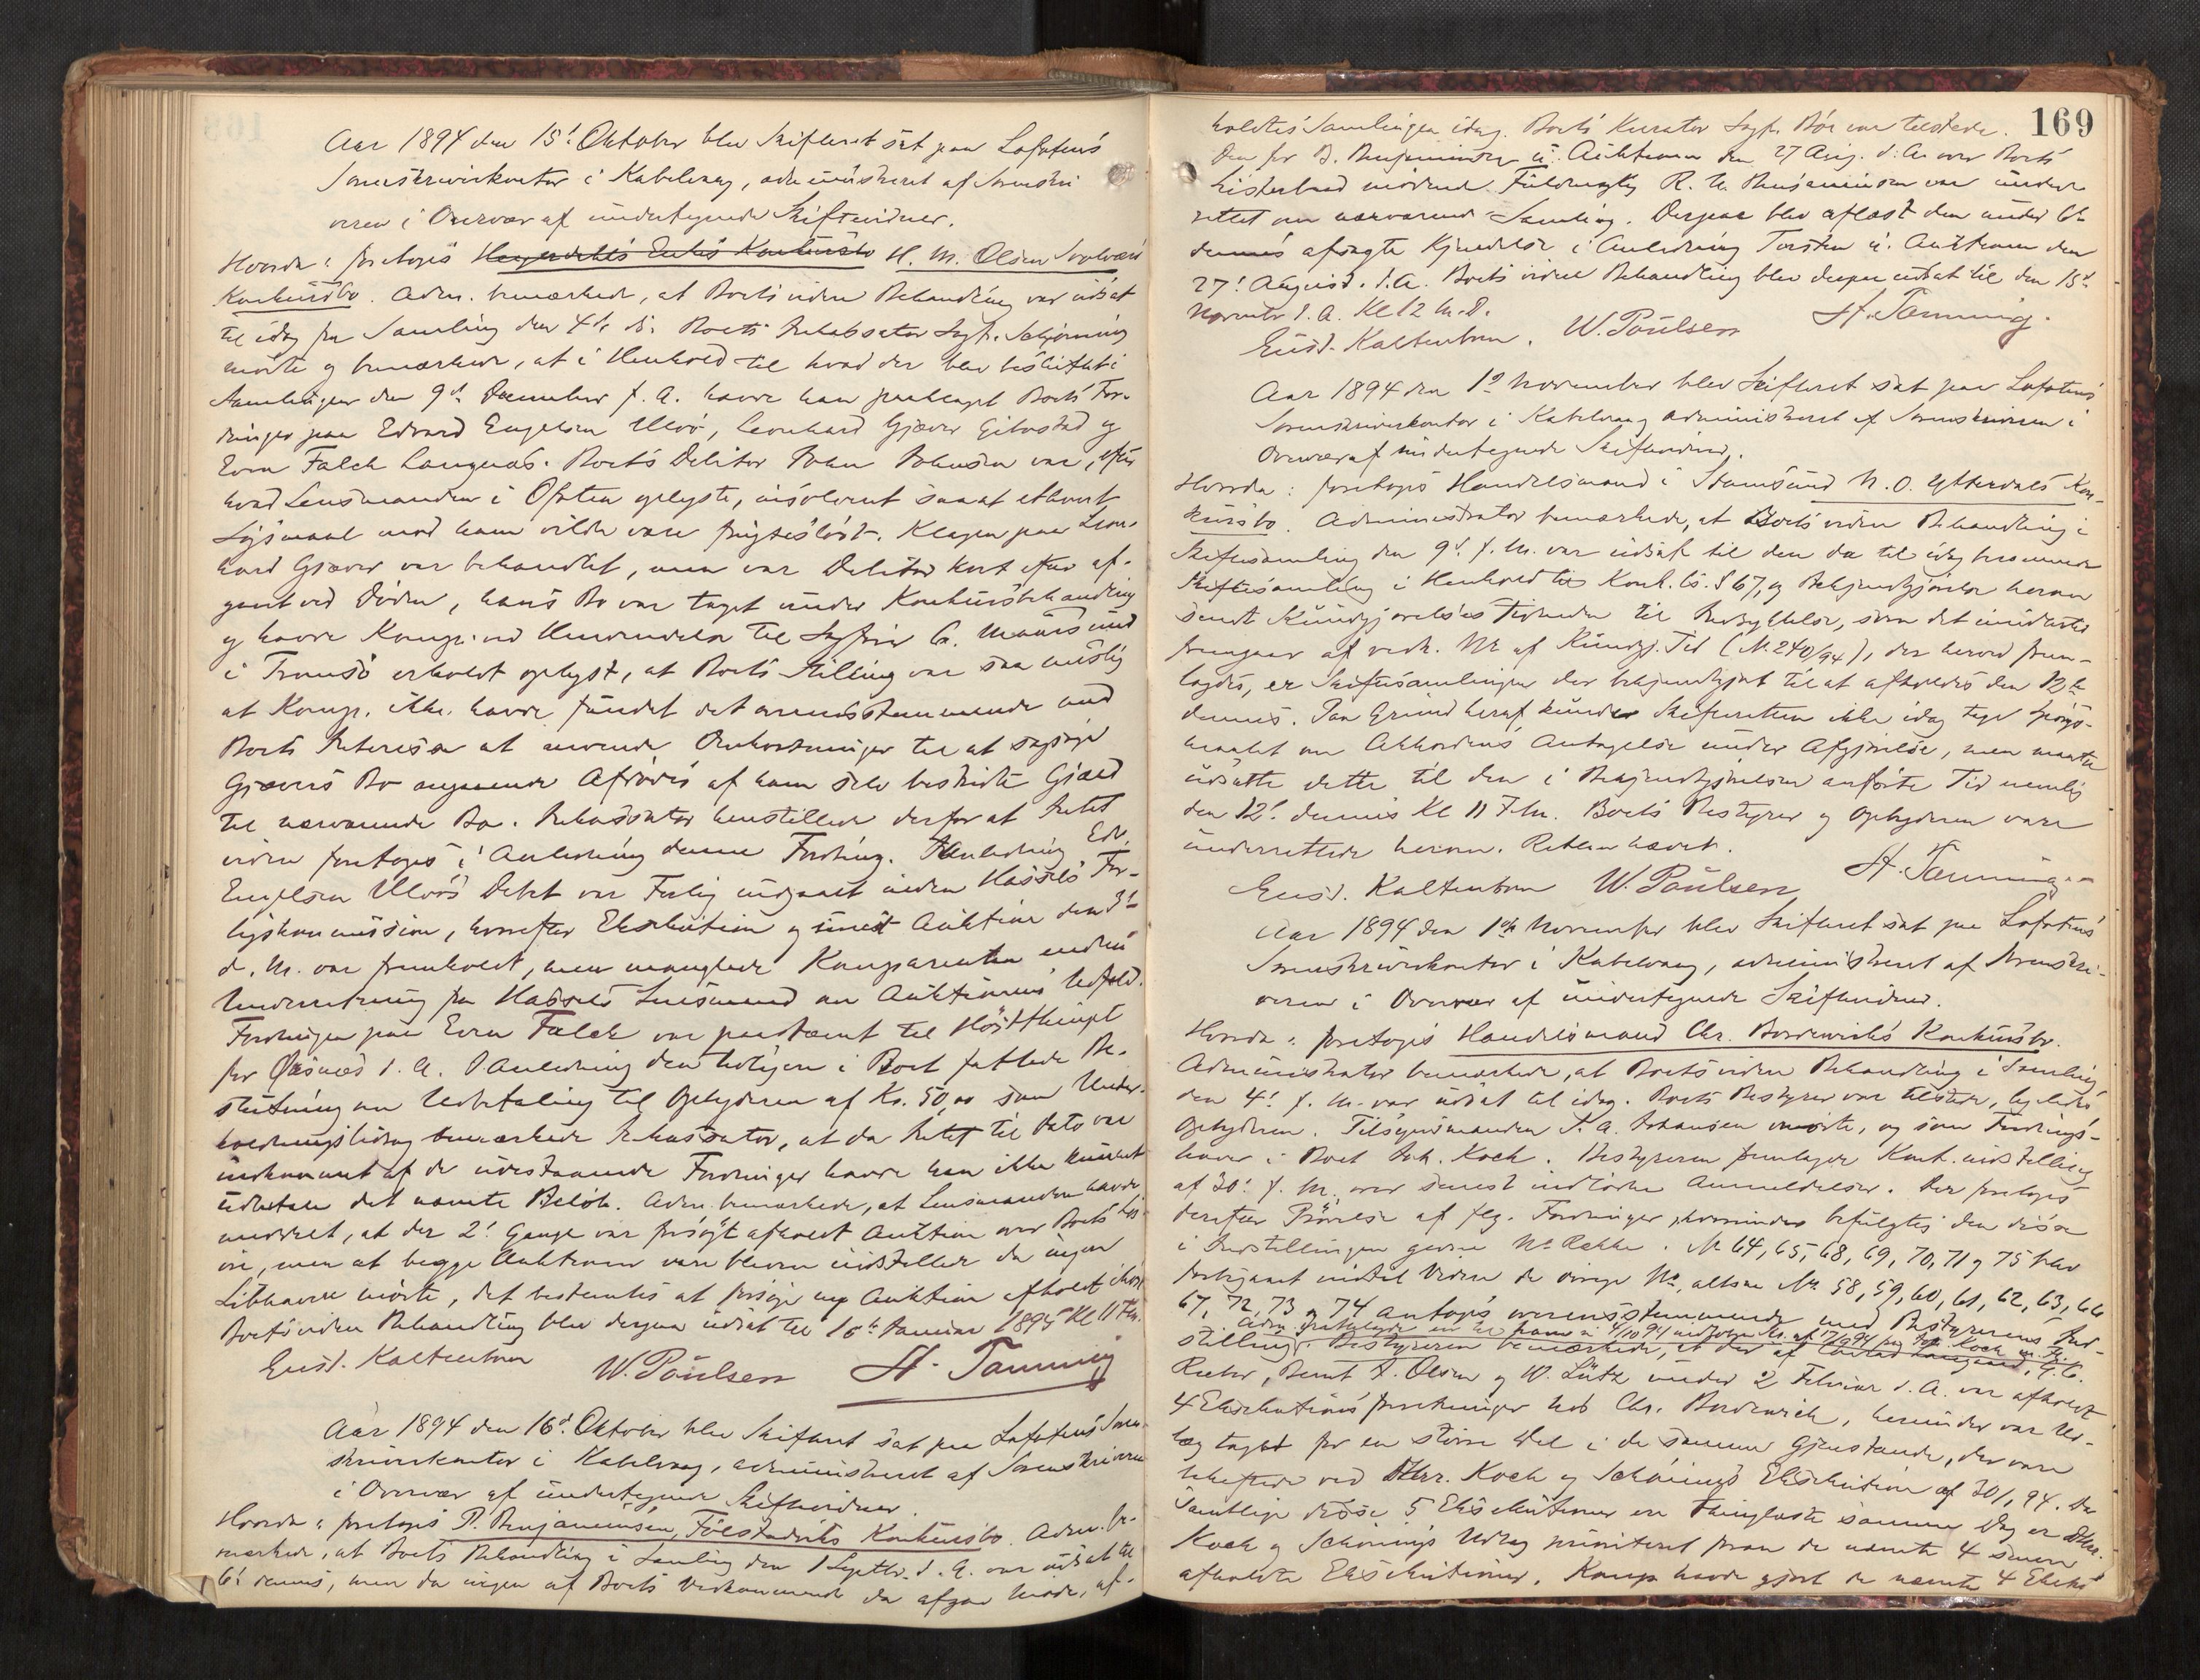 Aar 1894 den 15' Oktober blev Skifteret sat paa Lofotens
Sorenskriverkontor i Kabelvaag, administreret af Sorenskri
veren i Overvær af undertegnede Skiftevidner.
Hvorda: foretoges Heyerdahls Enkes Konkursbo H. M. Olsen Svolværs
Konkursbo. Adm. bemærkede, at Boets videre Behandling var udsat
til idag fra Samling den 4de ds. Boets Inkassator Sagf. Schjønning
mødte og bemærkede, at i Henhold til hvad der blev besluttet i
Samlingen den 9de December f. A. havde han paaklaget Boets For-
dringer paa Edvard Engelsen Ulvø, Leonhard Gjæver Gibostad og
Evan Falch Langnæs. Boets Debitor Johan Johnsen var, efter
hvad Lensmanden i Ofoten oplyste, insolvent saa at ethvert
Søgsmaal mod ham vilde være frugtesløst. Klagen paa Leon-
hard Gjæver var behandlet, men var Debitor kort efter af-
gaaet ved Døden, hans Bo var taget under Konkursbehandling
og havde Komp. ved Henvendelse til Sagfører C. Maursund
i Tromsø erholdt oplyst, at Boets Stilling var saa uslig
at Komp. ikke havde fundet det overensstemmende med
Boets Interesse at anvende Omkostninger til at søge
Gjævers Bo angaaende Afdødes af ham selv bestridte Gjæld
til nærværende Bo. Inkassator henstillede derfor at Intet
videre foretoges i Anledning denne Fordring. I Anledning Edv.
Engelsen Ulvøs Debet var Forlig indgaaet inden Hassels For-
ligskommission, hvorefter Eksekution og senest Auktion den 3de
d. M. var fremholdt, men manglede Komparenten endnu
Underretning fra Hadsels Lensmand om Auktionens Udfald.
Fordringen paa Evan Falck var paastæmt til Høstthinget
for Øksnes d. A. I Anledning den tidligere i Boet fattede Be-
slutning om Udbetaling til Opbyderen af Kr. 50,00 som Under-
holdningsbidrag bemærkede Inkassator, at da Intet til Dato var
indkommet af de udestaaende Fordringer havde han ikke kunnet
udbetale det nævnte Beløb. Adm. bemærkede, at Lensmanden havde
meddelt, at der 2' Gange var forsøgt afholdt Auktion over Boets Løs-
øre, men at begge Auktioner vare blevne indstillede da ingen
Libhavere mødte, det bestemtes at forsøge ny Auktion afholdt
Boets videre Behandling blev derpaa udsat til 15de Januar 1895 Kl 11 Fm.
Eused. Kaltenborn W. Poulsen H. Tanning
Aar 1894 den 16de Oktober blev Skifteret sat paa Lofotens Soren-
skriverkontor i Kabelvaag, administreret af Sorenskriveren
i Overvær af undertegnede Skiftevidner.
Hvorda: foretoges P. Benjaminsen, Følstadviks Konkursbo. Adm. be-
mærkede, at Boets Behandling i Samling den 1 Septbr. d. A. var udsat til
6' dennes, men da ingen af Boets Vedkommende da afgav Møde, af-
169
holdtes Samlingen idag. Boets Kurator Sagf. Bøe var tilstede.
Den for B. Benjaminsen u. Auktionen den 27 Aug. d. A. over Boets
mødende Fuldmægtig R. U. Benjaminsen var under-
rettet om nærværende Samling. Derpaa blev oplæst den under 6te
dennes afsagte Kjendelse i Anledning Tvisten u. Auktionen den
27' August d. A. Boets videre Behandling blev derpaa udsat til den 15de
Novembr d. A. Kl 12 M.D.
Eused. Kaltenborn. W. Poulsen H. Tanning.
Aar 1894 den 1ste November blev Skifteret sat paa Lofotens
Sorenskriverkontor i Kabelvaag administreret af Sorenskriveren i
Overvær af undertegnede Skiftevidner.
Hvorda: foretoges Handelsmand i Stamsund N. O. Ytterdals Kon-
kursbo. Administrator bemærkede, at Boets videre Behandling i
Skiftesamling den 9de f. M. var udsat til den da til idag berammede
Skiftesamling i Henhold til Konk. lo. § 67, og Bekjendtgjørelse herom
sendt Kundgjørelses Tidende til Indrykkelse, som det imidlertid
fremgaar af vedk. Nr af Kundgj. Tid (No 240/94), der herved frem-
lagdes, er Skiftesamlingen der bekjendtgjort til at afholdes den 12te
dennes. Paa Grund heraf kunde Skifteretten ikke idag tage Spørgs-
maalet om Akkordens Antagelse under Afgjørelse, men maatte
udsætte dette til den i Bekjendtgjørelsen anførte Tid nemlig
den 12' dennes Kl 11 Fm. Boets Bestyrer og Opbyderen vare
underrettede herom. Retten hævet.
Eused. Kaltenborn W. Poulsen H. Tanning
Aar 1894 den 1ste November blev Skifteret sat paa Lofotens
Sorenskriverkontor i Kabelvaag, administreret af Sorenskri-
veren i Overvær af undertegnede Skiftevidner.
Hvorda: foretoges Handelsmand Chr. Bordewichs Konkursbo.
Administrator bemærkede, at Boets videre Behandling i Samling
den 4' f. M. var udsat til idag. Boets Bestyrer var tilstede, ligeledes
Opbyderen. Tilsynsmanden P. A. Johansen mødte, og som Fordrings-
haver i Boet Joh. Koch. Bestyreren fremlagde Konk. indstilling
af 30' f. M. over senest indløbne Anmeldelser. Der foretoges
derefter Prøvelse af flg. Fordringer, hvorunder befulgtes den disse
i Indstillingen givne No Rekke. No 64, 65, 68, 69, 70, 71 og 75 blev
forbigaaet indtil Videre de øvrige No, altsaa No 58, 59, 60, 61, 62, 63, 66
67, 72, 73 og 74 antoges overensstemmende med Bestyrerens Ind-
Adm. fremlagde en til ham u. 4/10 94 Kr. af 17/9 94 fra Joh. Koch
stilling. Bestyreren bemærkede, at der af Conrad Langaard, G. C.
Rieber, Bernt A. Olsen og W. Lütz under 2 Februar d. A. var afholdt
4 Eksekutionsforretninger hos Chr. Bordewich, herunder var Ud-
læg taget for en større Del i de samme Gjenstande, der vare
behæftede ved DHrr. Koch og Schønings Eksekution af 30/1 94. Da
samtlige disse 5 Eksekutioner ere thinglæste samme Dag er DHrr.
Koch og Schønings Udlæg prioriteret fram de nævnte 4 senere
afholdte Eksekutioner. Komp havde gjort de nævnte 4 Ekse